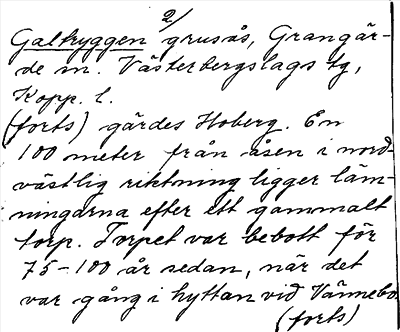 2/
Galhyggen grusås, Grangär-
de sn. Västerbergslags tg,
Kopp. l.
(forts) gärdes Hoberg. En
100 meter från åsen i nord-
västlig riktning ligger läm-
ningarna efter ett gammalt
torp. Torpet var bebott för
75-100 år sedan, när det
var gång i hyttan vid Vännebo.
(forts)